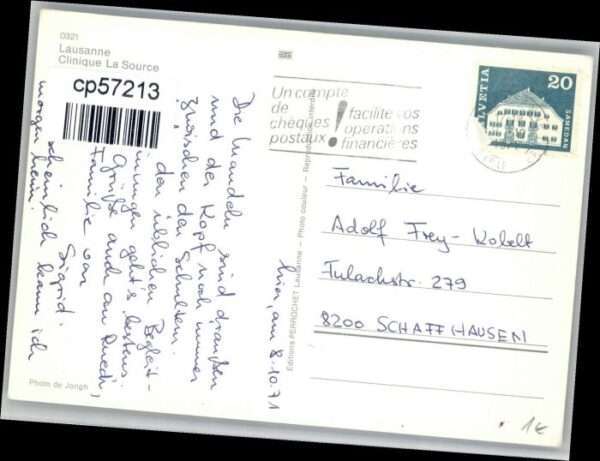 0321
Lausanne
Clinique La Source
cp57213
Un compte
de
chèques
postaux
!
facilite vos
opérations
financières
HELVETIA
20
SAMEDAN
hier, am 8.10.71
Die Mandeln sind draußen
und der Kopf noch immer
zwischen den Schultern.
den üblichen Begleit-
ungen geht's bestens.
Grüße auch an
Familie von
Sigrid.
scheinlich kann ich
morgen heim.
Editions PERROCHET Lausanne – Photo couleur – Reproduction interdite
Familie
Adolf Frey-Kobelt
Fulachstr. 279
8200 SCHAFFHAUSEN
Photo de Jongh
1€